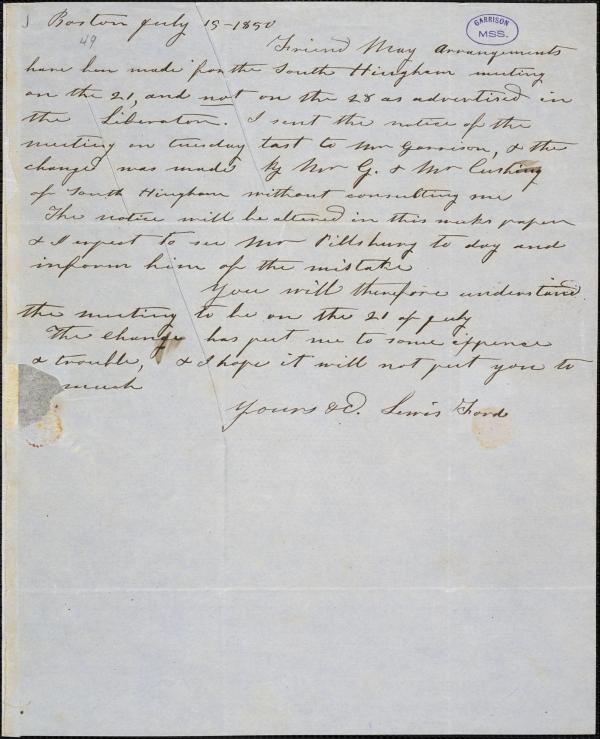 Boston July 15-1850
GARRISON
MSS.
49
Friend May Arrangements
have ben made for the South Hingham meeting
on the 21, and not on the 28 as advertised in
the Liberator. I sent the notice of the
meeting on tuesday last to Mr Garrison, & the
change was made by Mr G. & Mr Cushing
of South Hingham without consulting me
The notice will be altered in this weeks paper
& I expect to see Mr Pillsbury to day and
inform him of the mistake
You will therefore understand
the meeting to be on the 21 of july
The change has put me to some expence
& trouble, & I hope it will not put you to
much
Yours &c. Lewis Ford